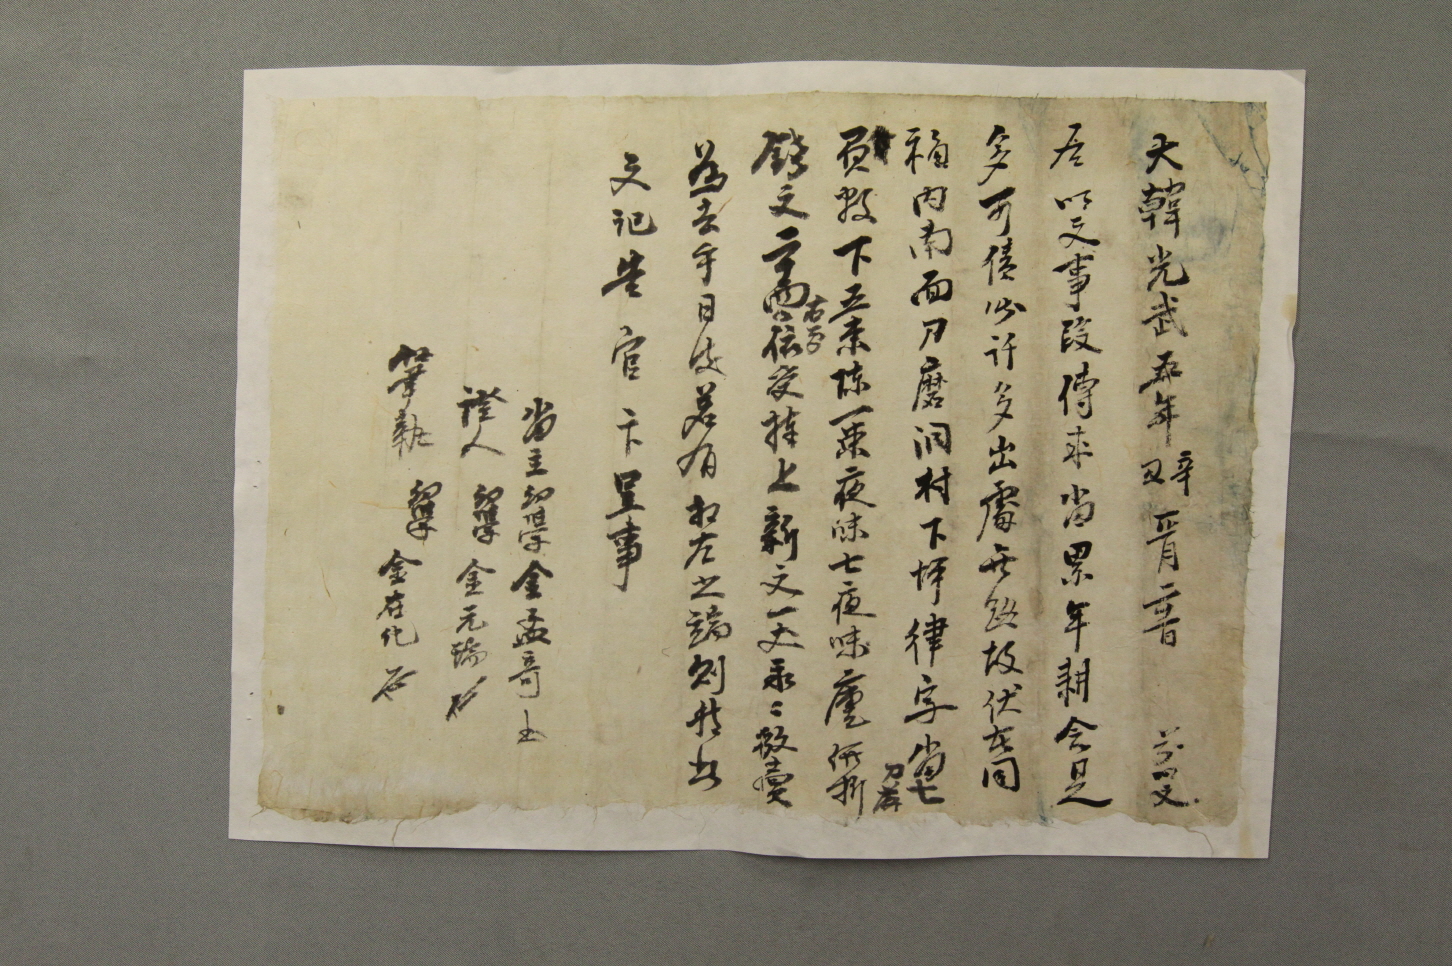 大韓光武五年辛丑正月二十日 前明文
右明文事段傳來畓累年耕食是
多可債錢許多出處無路故伏在同
福內南面刀磨洞村下坪律字畓七
刀落
負數下五束陳一束夜味七夜味廤価折
錢文二百両依
右前
交捧上新文一丈永永放賣
為去乎日後若有相左之端則持此
文記告官卞呈事
畓主幼學金孟哥
證人幼學金元瑞
筆執幼學金在化